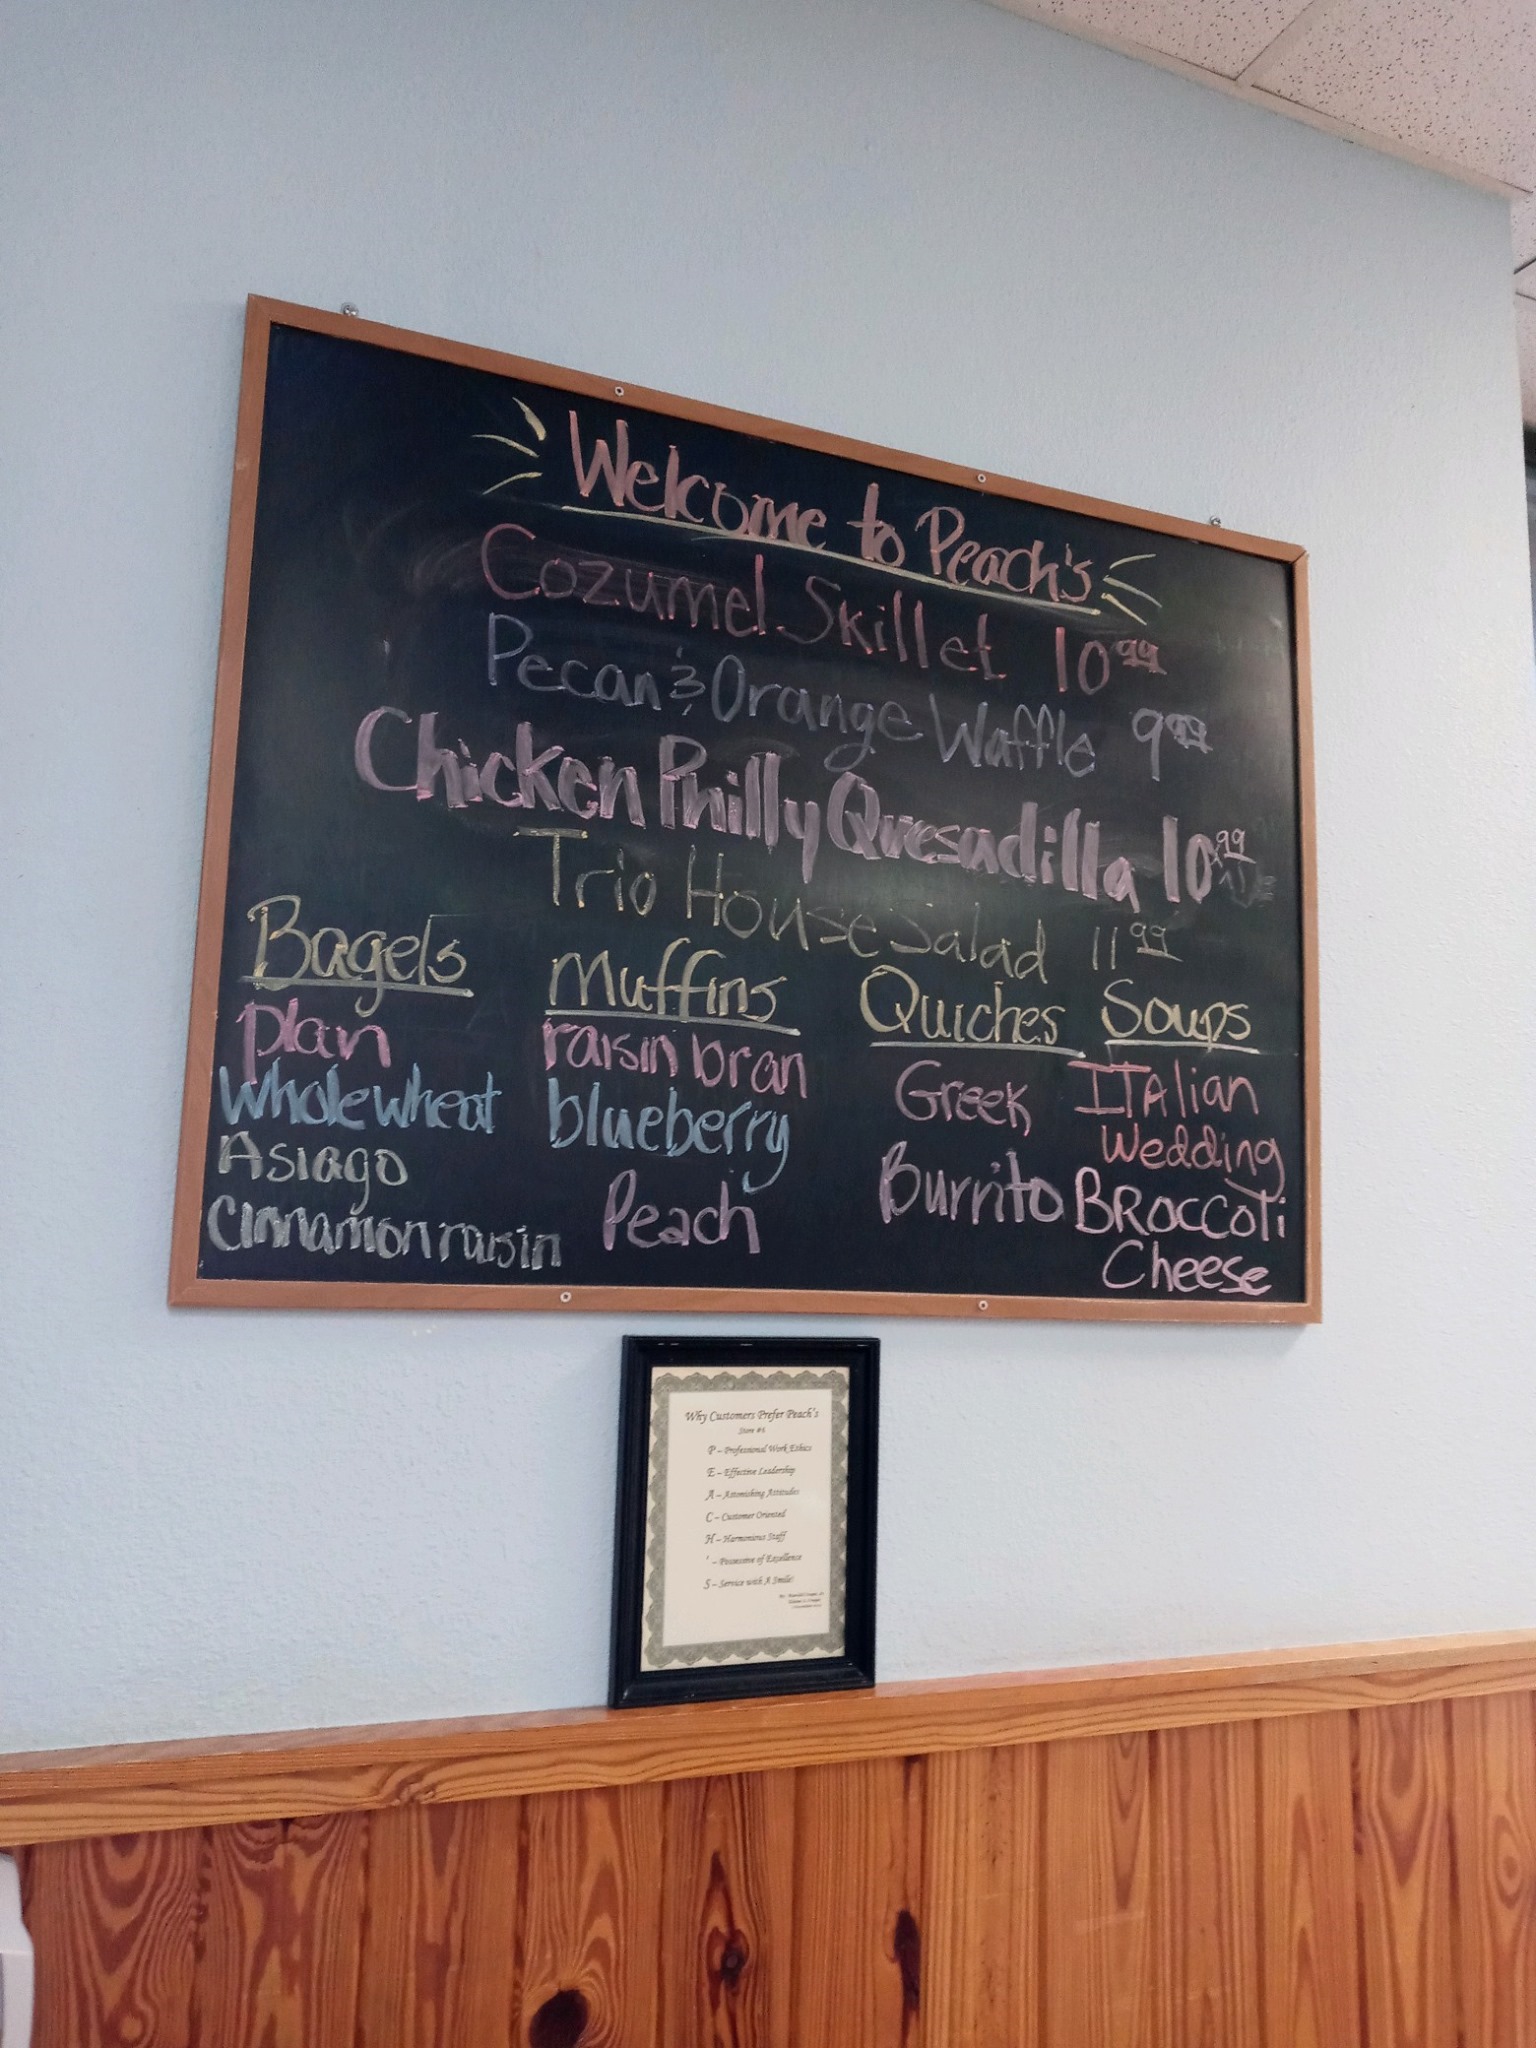 Welcome to Peach's
Cozumel Skillet 10 99
Pecan & Orange Waffle 9 99
Chicken Philly Quesadilla 10 99
Trio House Salad 11 99
Bagels
plan
Wholewheat
Asiago
Cinnamon raisin
Muffins
raisin bran
blueberry
Peach
Quiches
Greek
Burrito
Soups
ITAlian
Wedding
BROCCOLi
Cheese
Why Customers Prefer Peach's
Store #1
P – Professional Work Ethics
E – Effective Leadership
A – Astonishing Attitudes
C – Customer Oriented
H – Harmonious Staff
' – Possessive of Excellence
S – Service with A Smile!